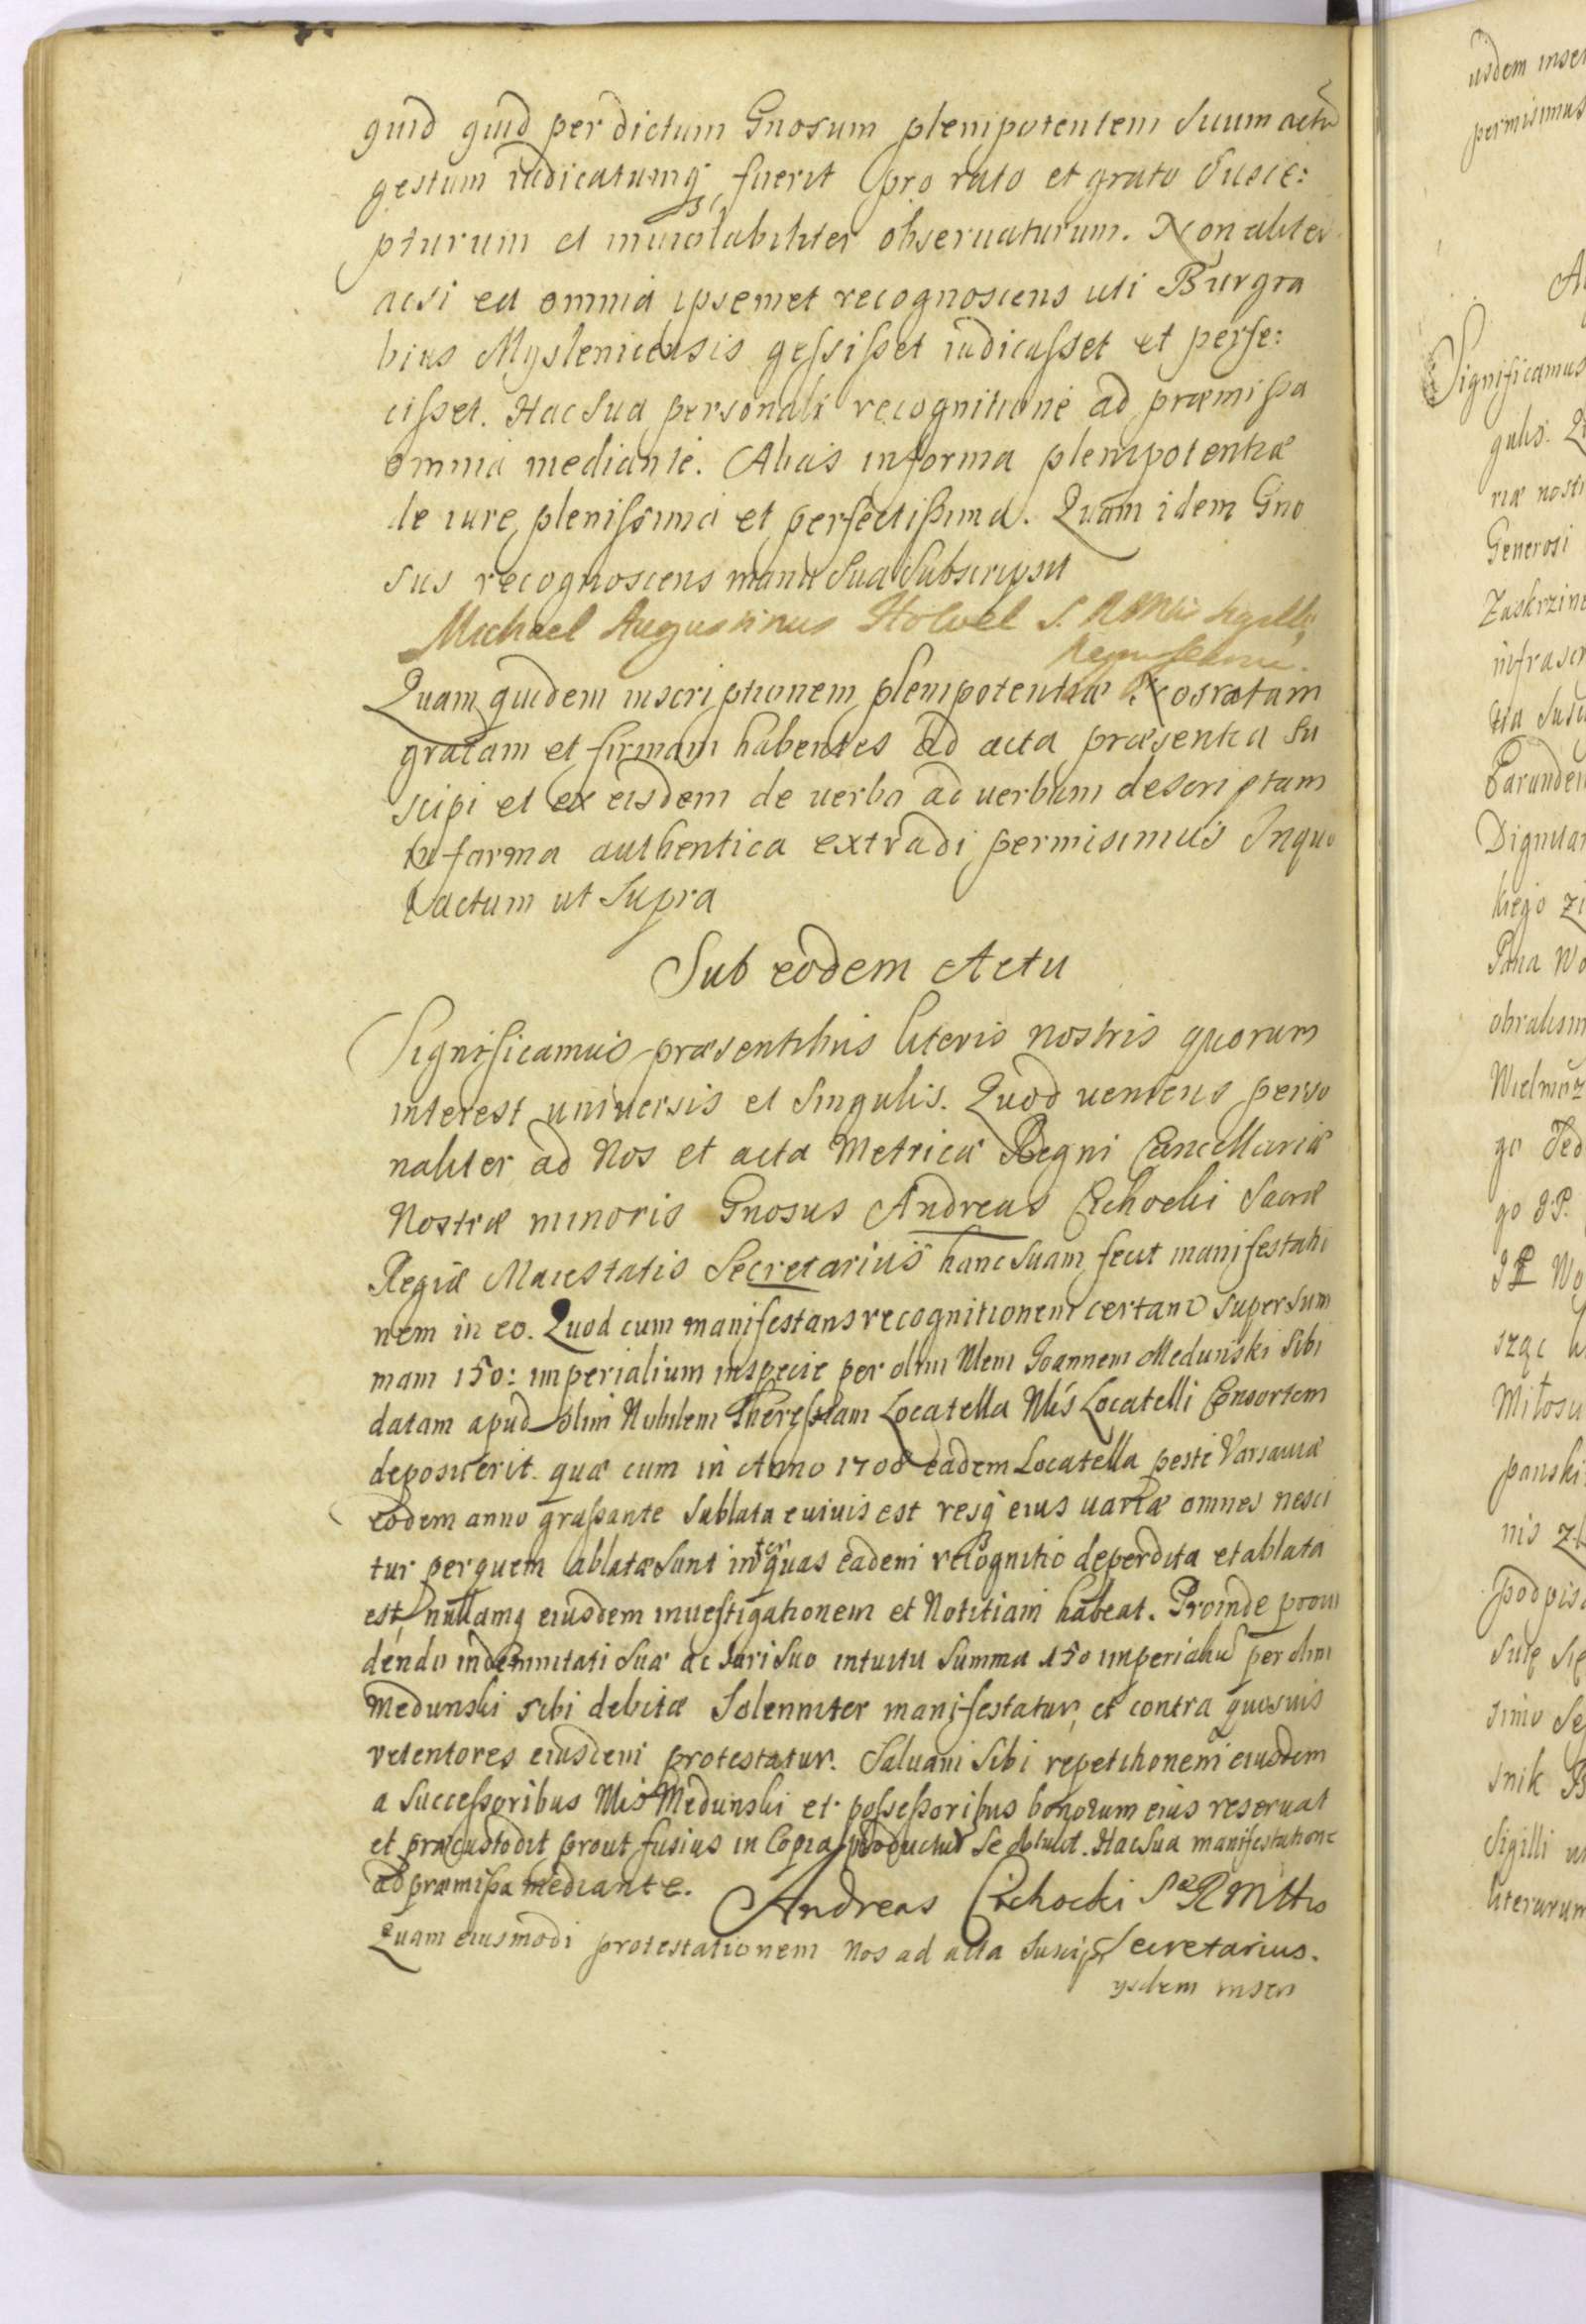 quid quid per dictum Gnosum plenipotentem Suum actu
gestum iudicatumq fuerit pro rato et grato Susce:
pturum et inuiolabiliter obseruaturum. Non aliter
acsi ea omnia ipsemet recognoscens uti Burgra
bius Myslenicensis geſsiſset iudicaſset et perfe:
ciſset. Hac Sua personali recognitione ad præmiſsa
omnia mediante. Alias in forma plenipotentiæ
de iure pleniſsima et perfectiſsima. Quam idem Gno
sus recognoscens manu Sua Subscripsit
Michael Augustinus S. R. Mtis Sigilli
Quam quidem inscriptionem plenipotentiæ Nos ratam
gratam et firmam habentes ad acta præsentia Su
scipi et ex eisdem de uerbo ad uerbum descriptam
in forma authentica extradi permisimus In quo
actum ut Supra
Sub eodem Actu
Significamus præsentibus literis nostris quorum
interest uniuersis et Singulis. Quod ueniens perso
naliter ad Nos et acta Metricæ Regni Cancellariæ
Nostræ minoris Gnosus Andreas Cichocki Sacræ
Regiæ Maiestatis Secretarius hanc Suam fecit manifestatio
nem in eo. Quod cum manifestans recognitionem certam Super Sum
mam 150: imperialium in specie per olim Nlem Joannem Medunski Sibi
datam apud olim Nobilem Theresiam Locatella Nlis Locatelli Consortem
deposuerit. quæ cum in Anno 1708 eadem Locatella peste Varsauiæ
eodem anno graſsante Sublata e uiuis est resq eius uariæ omnes nesci
tur per quem ablatæ Sunt inter quas eadem recognitio deperdita et ablata
est, nullamq eiusdem inuestigationem et Notitiam habeat. Proinde proui
dendo indemnitati Suæ ac Iuri Suo intuitu Summæ 150 imperialiu per olim
Medunski sibi debitæ Solenniter manifestatur, et contra quosuis
retentores eiusdem protestatur. Saluam Sibi repetitionem eiusdem
a Succeſsoribus Nlis Medunski et poſseſsoribus bonorum eius reseruat
et præcustodit prout fusius in Copia producta Se Hac Sua manifestatione
ad præmiſsa mediante. Andreas Cichocki S R Mttis
Quam eiusmodi protestationem Nos ad acta Suscip Secretarius.
ysdem inseri